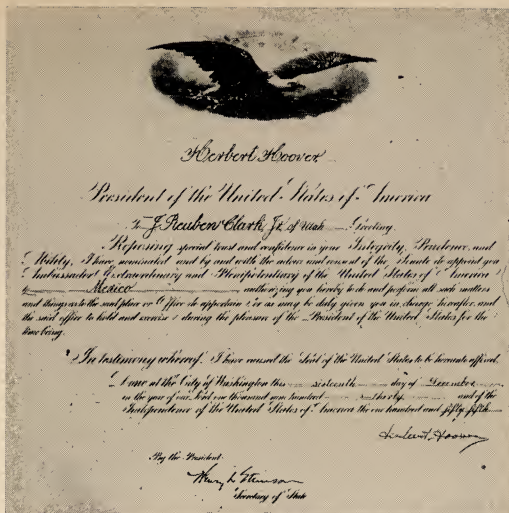 Herbert Hoover
President of the United States of America
To J. Reuben Clark, Jr. of Utah Greeting
Reposing special trust and confidence in your Integrity, Prudence, and
Ability, I have nominated and by and with the advice and consent of the Senate do appoint you
Ambassador Extraordinary and Plenipotentiary of the United States of America
to Mexico authorizing you hereby to do and perform all such matters
and things as to the said place or Office do appertain or as may be duly given you in charge hereafter, and
the said office to hold and exercise during the pleasure of the President of the United States for the
time being.
In testimony whereof, I have caused the Seal of the United States to be hereunto affixed.
Done at the City of Washington this sixteenth day of December
in the year of our Lord one thousand nine hundred thirty and of the
Independence of the United States of America the one hundred and fifty fifth
Herbert Hoover
By the President:
Henry L Stimson
Secretary of State